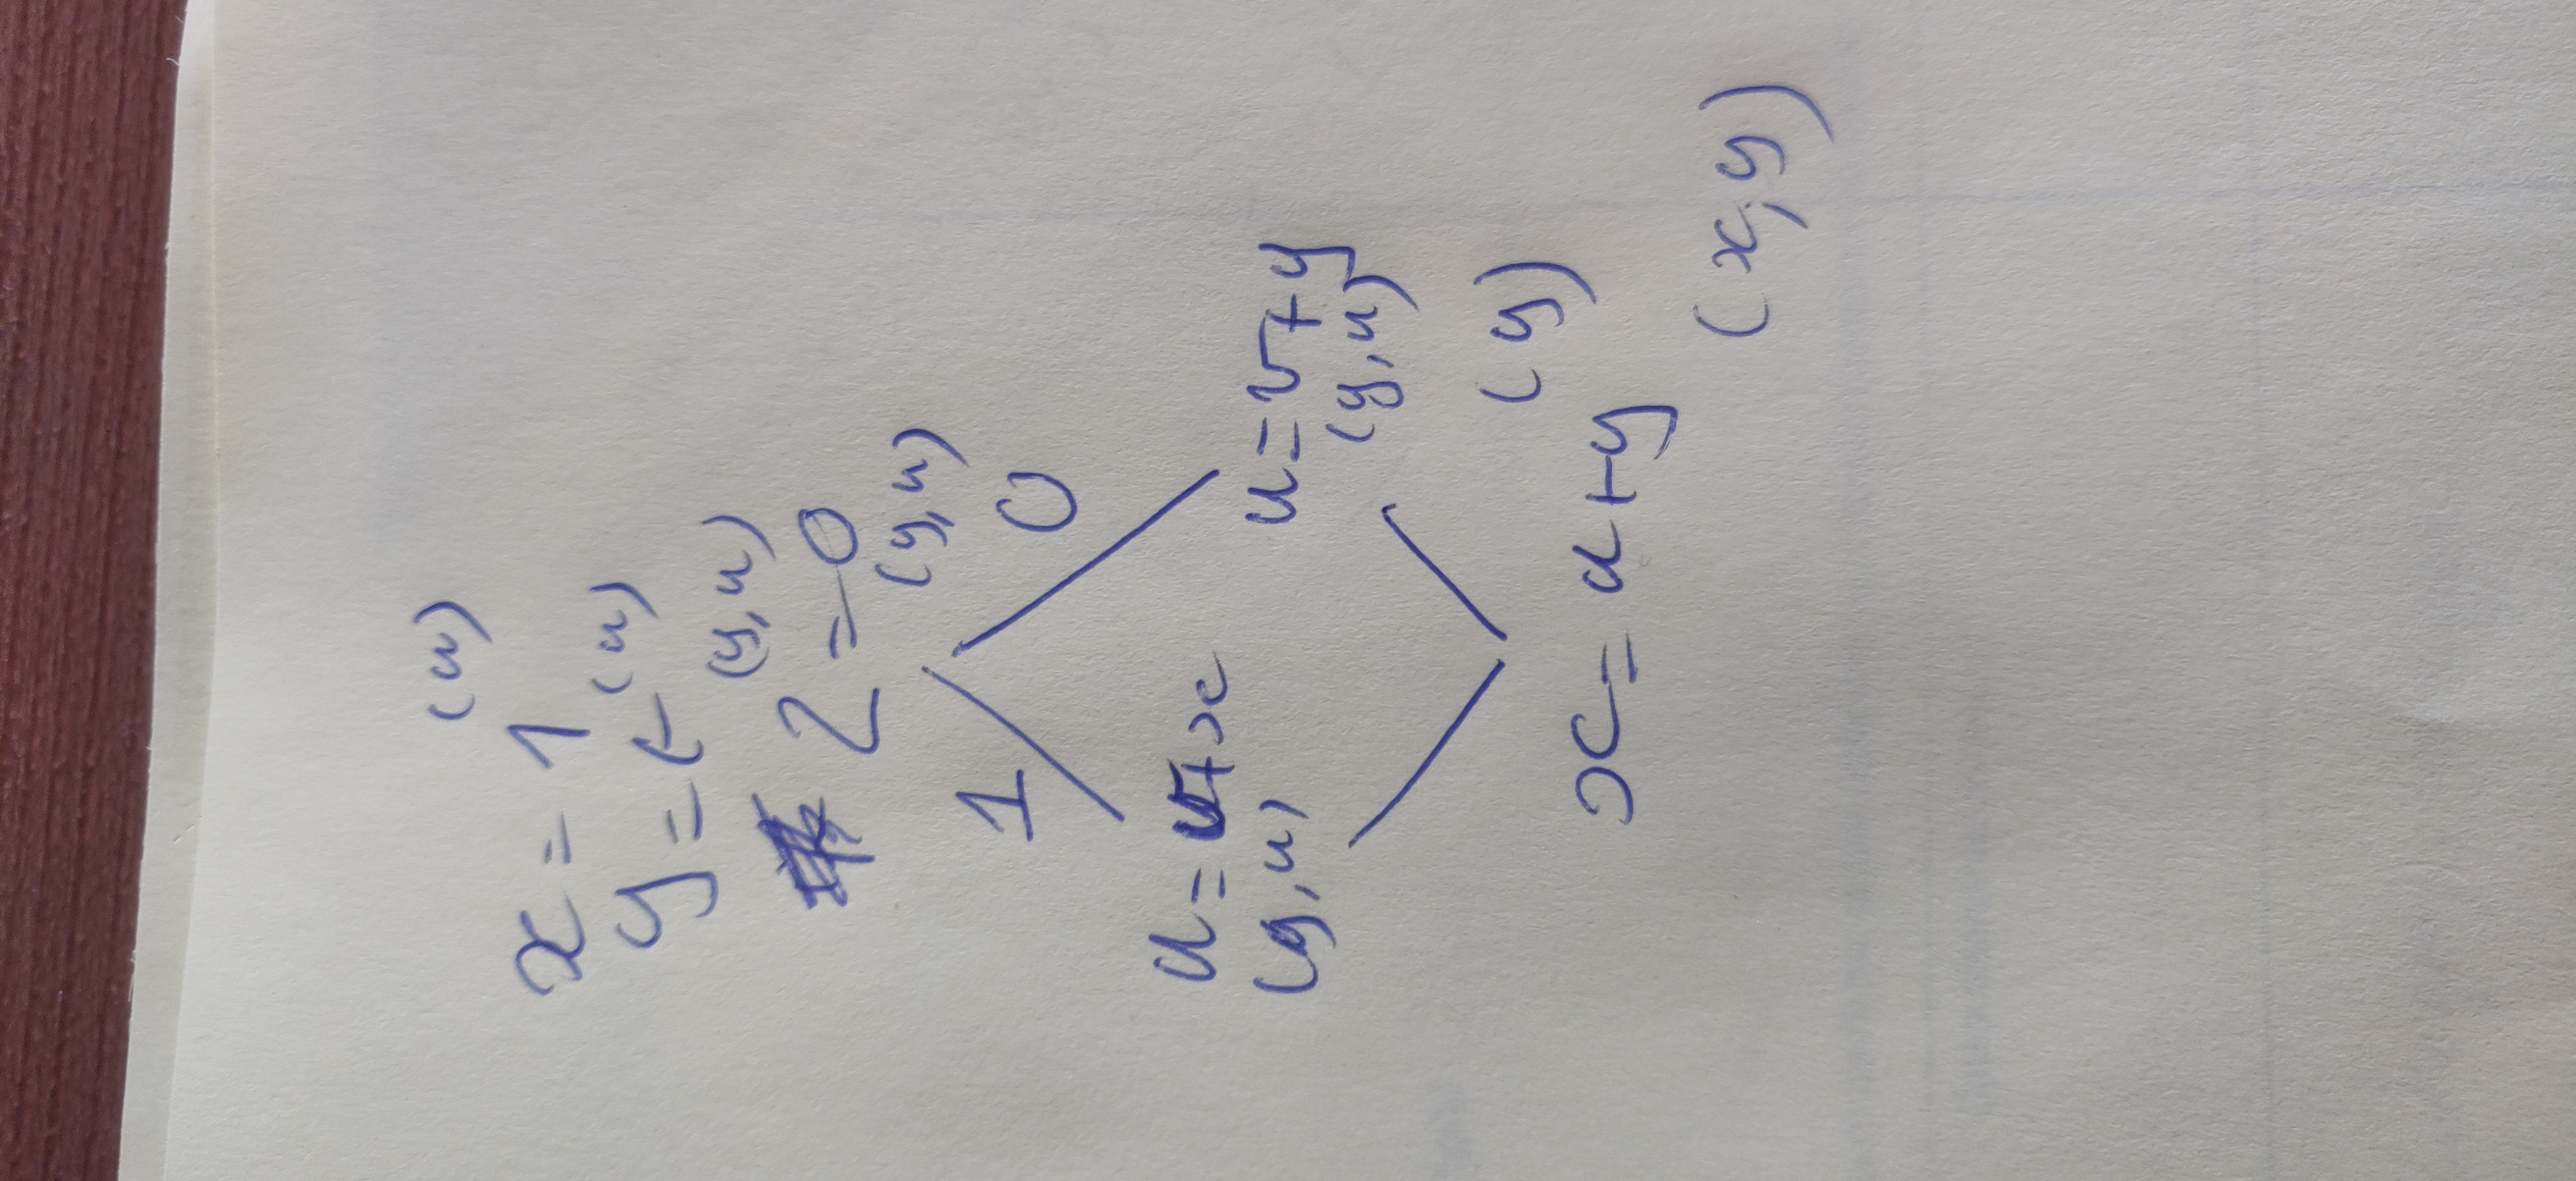 (u)
x = 1
(u)
y = t
(y, u)
z = 0
(y, u)
1
0
u = v + x
(y, u)
u = v + y
(y, u)
(y)
x = u + y
(x, y)